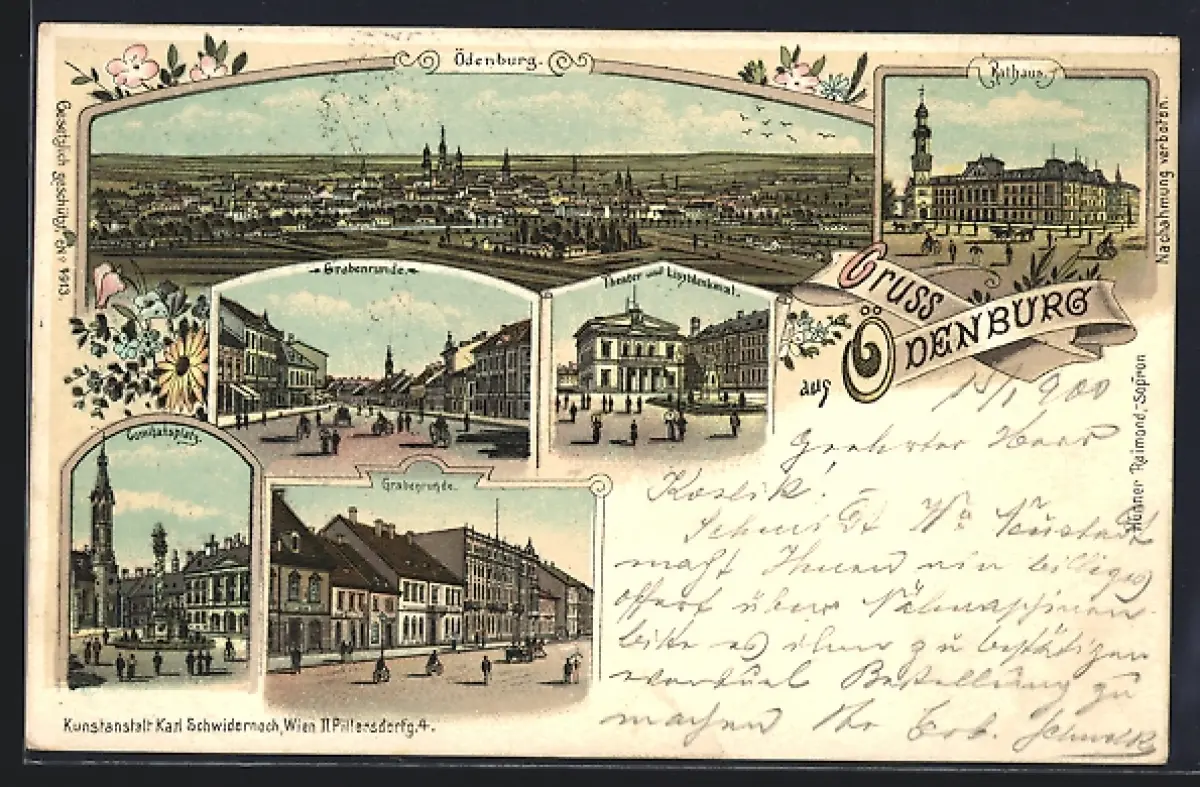 Ödenburg.
Rathaus.
Gesetzlich geschützt No 1913
Nachahmung verboten.
Grabenrunde.
Theater und Lisztdenkmal.
Gruss
aus ÖDENBURG
Comitatsplatz.
Grabenrunde.
Hunner Raimond, Sopron
15/1 900
Geehrter Herr
Koslik!
Schmidt Wr Neustadt
macht Ihnen ein billiges
offert über Nähmaschinen
bitte es ihm zu bestätigen
Bestellung zu
machen Ihr Erb.
Kunstanstalt Karl Schwidernoch, Wien II Pillersdorfg. 4.